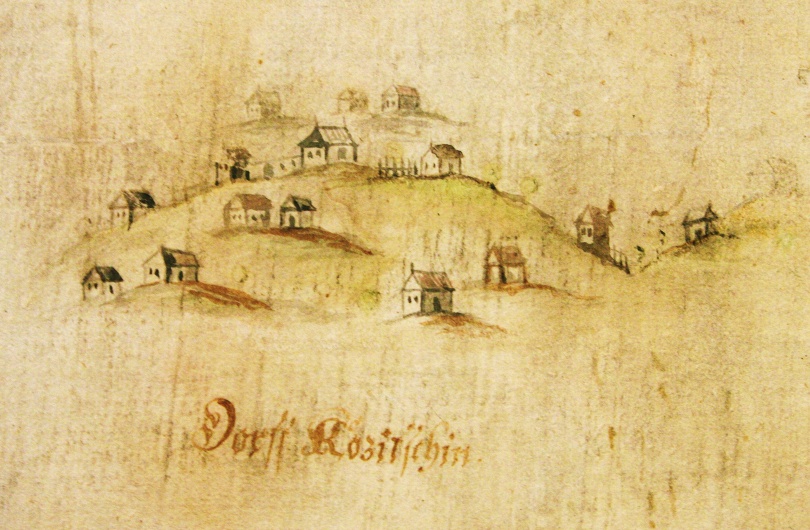 Dorff Kositschin.